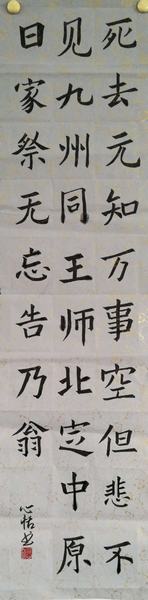 死去元知万事空但悲不
见九州同王师北定中原
日家祭无忘告乃翁
心恬书